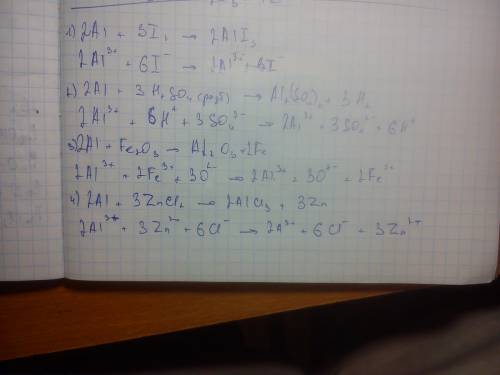 1) 2Al + 3I₂ → 2AlI₃
2Al³⁺ + 6I⁻ → 2Al³⁺ 3I⁻
2) 2Al + 3H₂SO₄ (разб) → Al₂(SO₄)₃ + 3H₂
2Al³⁺ + 6H⁺ + 3SO₄²⁻ → 2Al³⁺ + 3SO₄²⁻ + 6H⁺
3) 2Al + Fe₂O₃ → Al₂O₃ + 2Fe
2Al³⁺ + 2Fe³⁺ + 3O²⁻ → 2Al³⁺ + 3O²⁻ + 2Fe³⁺
4) 2Al + 3ZnCl₂ → 2AlCl₃ + 3Zn
2Al³⁺ + 3Zn²⁺ + 6Cl⁻ → 2Al³⁺ + 6Cl⁻ + 3Zn²⁺